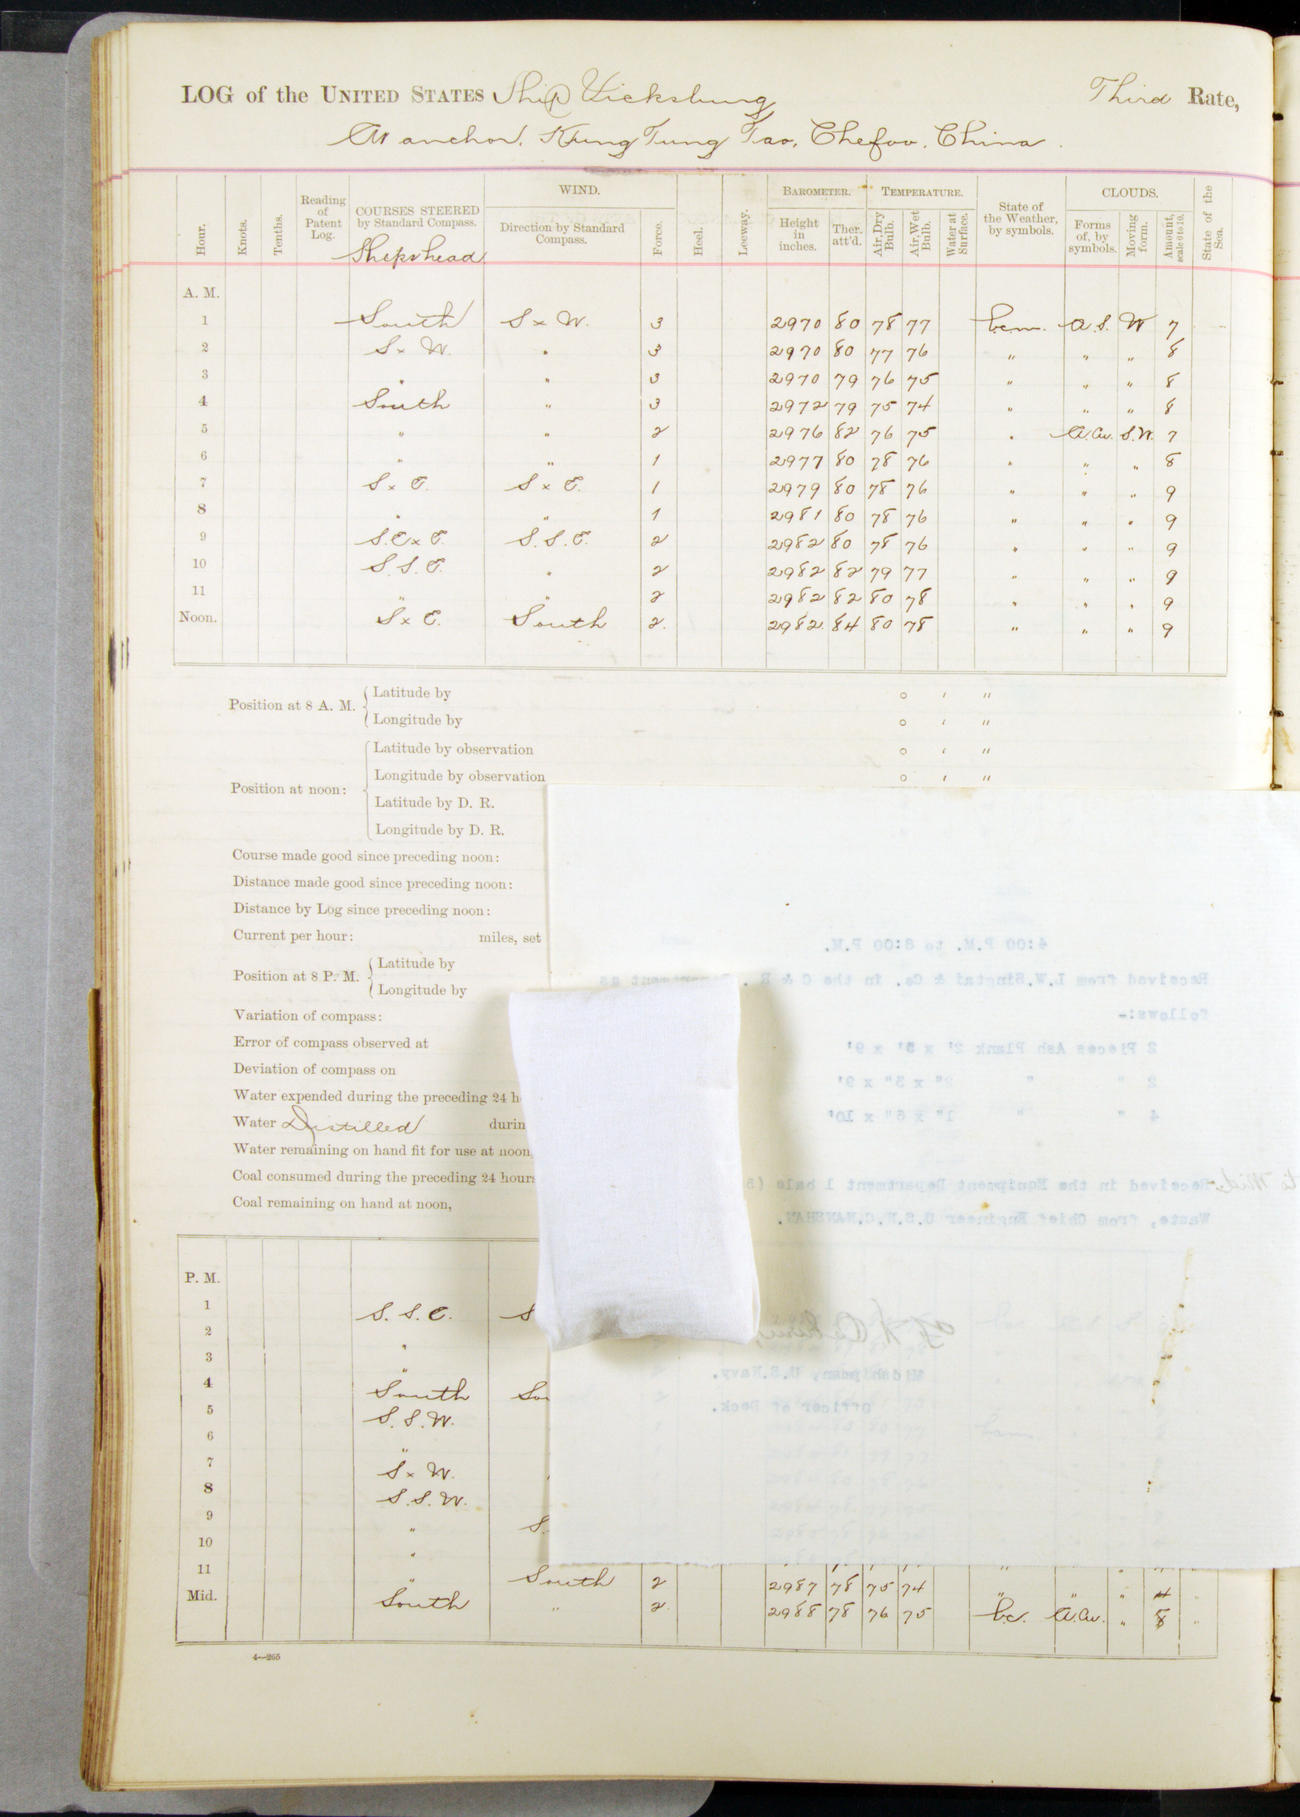 LOG of the UNITED STATES Ship Vicksburg Third Rate,
At anchor, Kung Tung Tao, Chefoo, China.
Hour. Knots. Tenths. Reading of Patent Log. COURSES STEERED by Standard Compass. WIND. Direction by Standard Compass. Force. Heel. Leeway. BAROMETER. Height in inches. Ther. att'd. TEMPERATURE. Air, Dry Bulb. Air, Wet Bulb. Water at Surface. State of the Weather, by symbols. CLOUDS. Forms of, by symbols. Moving form. Amount, scale 0 to 10. State of the Sea.
Ships head
A. M.
1 South S x W. 3 2970 80 78 77 bcm. A.S. W 7
2 S x W. " 3 2970 80 77 76 " " " 8
3 " " 3 2970 79 76 75 " " " 8
4 South " 3 2972 79 75 74 " " " 8
5 " " 2 2976 82 76 75 " A.Cu. S.W. 7
6 " " 1 2977 80 78 76 " " " 8
7 S x E. S x E. 1 2979 80 78 76 " " " 9
8 " " 1 2981 80 78 76 " " " 9
9 S.E x E. S.S.E. 2 2982 80 78 76 " " " 9
10 S.S.E. " 2 2982 82 79 77 " " " 9
11 " " 2 2982 82 80 78 " " " 9
Noon. S x E. South 2. 2982. 84 80 78 " " " 9
Position at 8 A. M. Latitude by ° ' "
Longitude by ° ' "
Position at noon: Latitude by observation ° ' "
Longitude by observation ° ' "
Latitude by D. R.
Longitude by D. R.
Course made good since preceding noon:
Distance made good since preceding noon:
Distance by Log since preceding noon:
Current per hour: miles, set
Position at 8 P. M. Latitude by
Longitude by
Variation of compass:
Error of compass observed at
Deviation of compass on
Water expended during the preceding 24 h
Water Distilled durin
Water remaining on hand fit for use at noon,
Coal consumed during the preceding 24 hours
Coal remaining on hand at noon,
4:00 P.M. to 8:00 P.M.
Received from L.W.Singtai & Co. in the C & R. Department as
follows:-
2 Pieces Ash Plank 2" x 5" x 9'
2 " " 2" x 3" x 9'
4 " " 1" x 6" x 10'
Received in the Equipment Department 1 bale
Waste, from Chief Engineer U.S.N.C.NANSHAN.
Midshipman, U.S.Navy.
Officer of Deck.
to Mid.
P. M.
1 S.S.E. S
2 "
3 "
4 South Sou
5 S.S.W.
6 "
7 S x W.
8 S.S.W.
9 " S.
10 "
11 " South 2 2987 78 75 74 " " " 4 "
Mid. South " 2. 2988 78 76 75 b.c. A.Cu. " 8 "
4—265